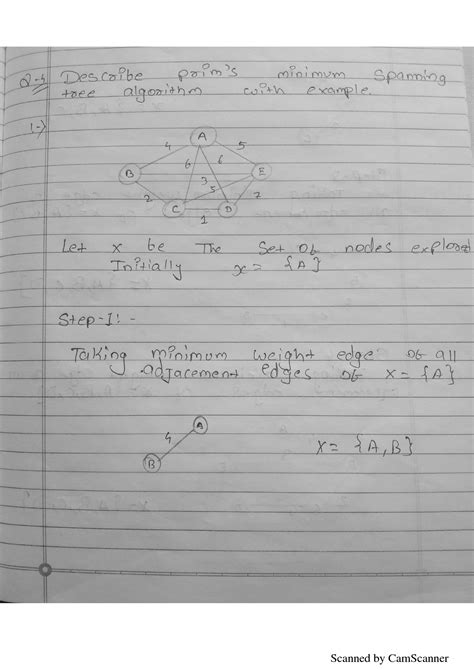 Q-4 Describe prim's minimum spanning
tree algorithm with example.
1-)
A
4 5
6 6
B E
3
5
2 2
C D
1
Let x be The Set Of nodes explored
Initially x = {A}
Step-I: -
Taking minimum weight edge of all
adjacement edges of x = {A}
A
4
B
X = {A,B}
Scanned by CamScanner